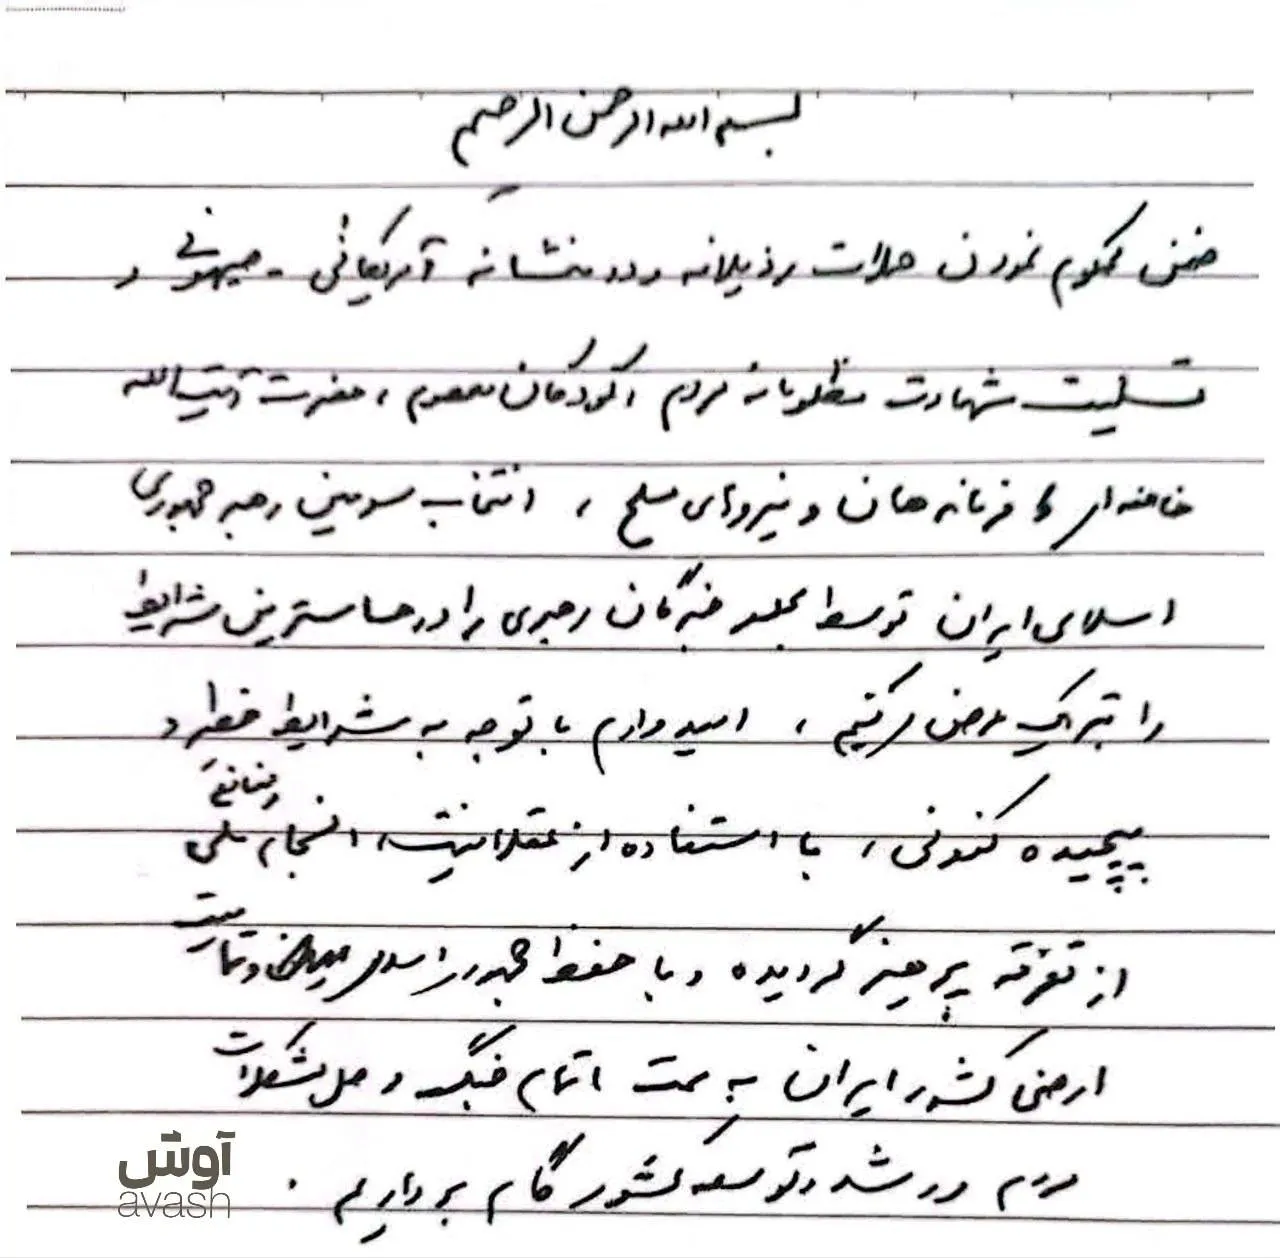 بسم الله الرحمن الرحیم
ضمن محکوم نمودن حملات رذیلانه و ددمنشانه آمریکائی - صهیونی و
تسلیت شهادت مظلومانه مردم، کودکان معصوم، حضرت آیت الله
خامنه‌ای و فرماندهان و نیروهای مسلح، انتخاب سومین رهبر جمهوری
اسلامی ایران توسط مجلس خبرگان رهبری را در حساسترین شرایط
را تبریک عرض میکنیم، امیدوارم با توجه به شرایط خطیر و
پیچیده کنونی، با استفاده از عقلانیت، انسجام ملی
از تفرقه پرهیز گردیده و با حفظ جمهوری اسلامی و تمامیت
ارضی کشور ایران به سمت اتمام جنگ و حل مشکلات
مردم و رشد و توسعه کشور گام برداریم.
آوش
avash